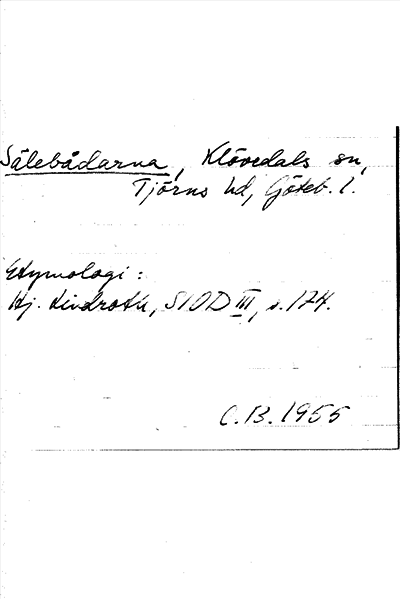 Sälebådarna, Klövedals sn,
Tjörns hd, Göteb. l.
Etymologi:
Hj. Lindroth, SIOD III, s. 174.
C.B. 1955